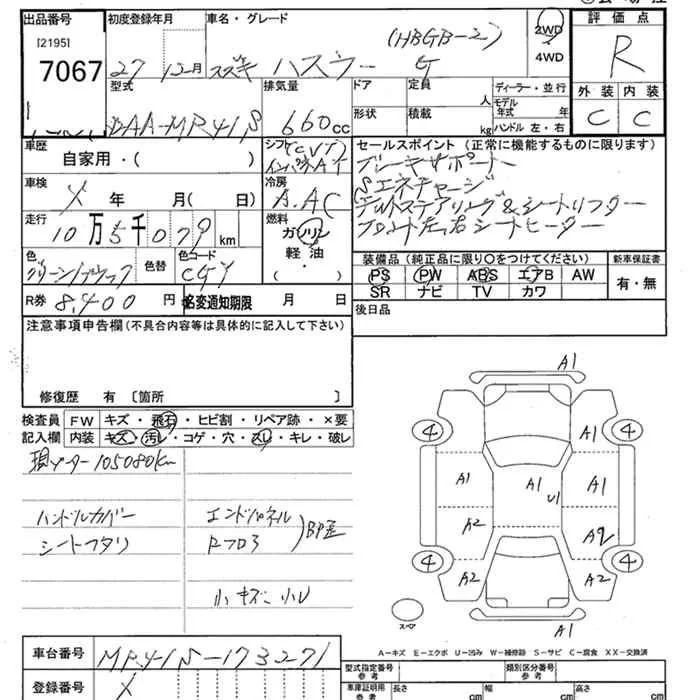 出品番号 初度登録年月 車名・グレード 評価点
[2195]
7067 27 12月 スズキ ハスラー (HBGB-2) G 2WD 4WD R
型式 排気量 ドア 定員 人 ディーラー・並行 外装 内装
形状 積載 kg モデル年式 年 ハンドル 左・右
DAA-MR41S 660cc C C
車歴 シフト セールスポイント (正常に機能するものに限ります)
自家用・( ) (CVT) インパネAT ブレーキサポート
車検 × 年 月( 日) 冷房 A.AC Sエネチャージ
走行 10万5千079km 燃料 チルトステアリング&シートリフター
ガソリン フロント左右シートヒーター
色 色替 色コード 軽油・( ) 装備品 (純正品に限り○をつけてください) 新車保証書
CGY PS PW ABS エアB AW 有・無
R券 8,400円 名変通知期限 月 日 SR ナビ TV カワ
注意事項申告欄(不具合内容等は具体的に記入して下さい) 後日品
修復歴 有 〔箇所 〕
検査員 FW キズ・飛石・ヒビ割・リペア跡・×要
記入欄 内装 キズ・汚レ・コゲ・穴・スレ・キレ・破レ
現メーター105080km
ハンドルカバー エンドパネル
シートヘタリ RフロアBP歪
小キズ 小凹
A1
4 4
A1
A1 A1 U1 A1
A2
4 4
A2 A2
スペア
A1
A-キズ E-エクボ U-凹み W-補修跡 S-サビ C-腐食 XX-交換済
車台番号 MR41S-173271
登録番号 ×
型式指定番号 参考 類別区分番号 参考
車庫証明用 参考 長さ cm 幅 cm 高さ cm